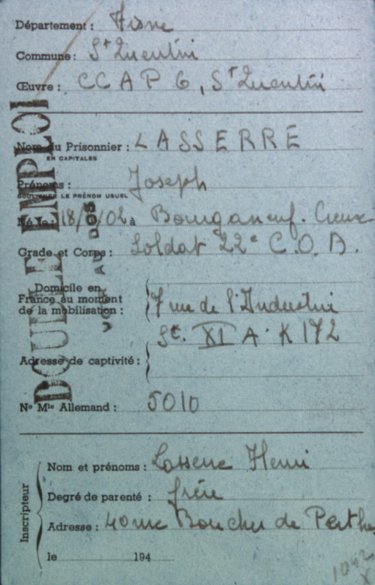 Département : Aisne
Commune : St Quentin
Œuvre : C C A P G, St Quentin
Nom du Prisonnier : LASSERRE
EN CAPITALES
Prénoms : Joseph
SOULIGNER LE PRÉNOM USUEL
Né le : 18/ /02 à Bourganeuf. Creuse
Grade et Corps : Soldat 22e C.O.A.
Domicile en
France au moment
de la mobilisation : 7 rue de l'Industrie
St. XI A. K 172
Adresse de captivité :
No Mle Allemand : 5010
Inscripteur
Nom et prénoms : Lasserre Henri
Degré de parenté : frère
Adresse : 40 rue Boucher de Perthes
le 194
1942
DOUBLE EMPLOI
VOIR AU DOS